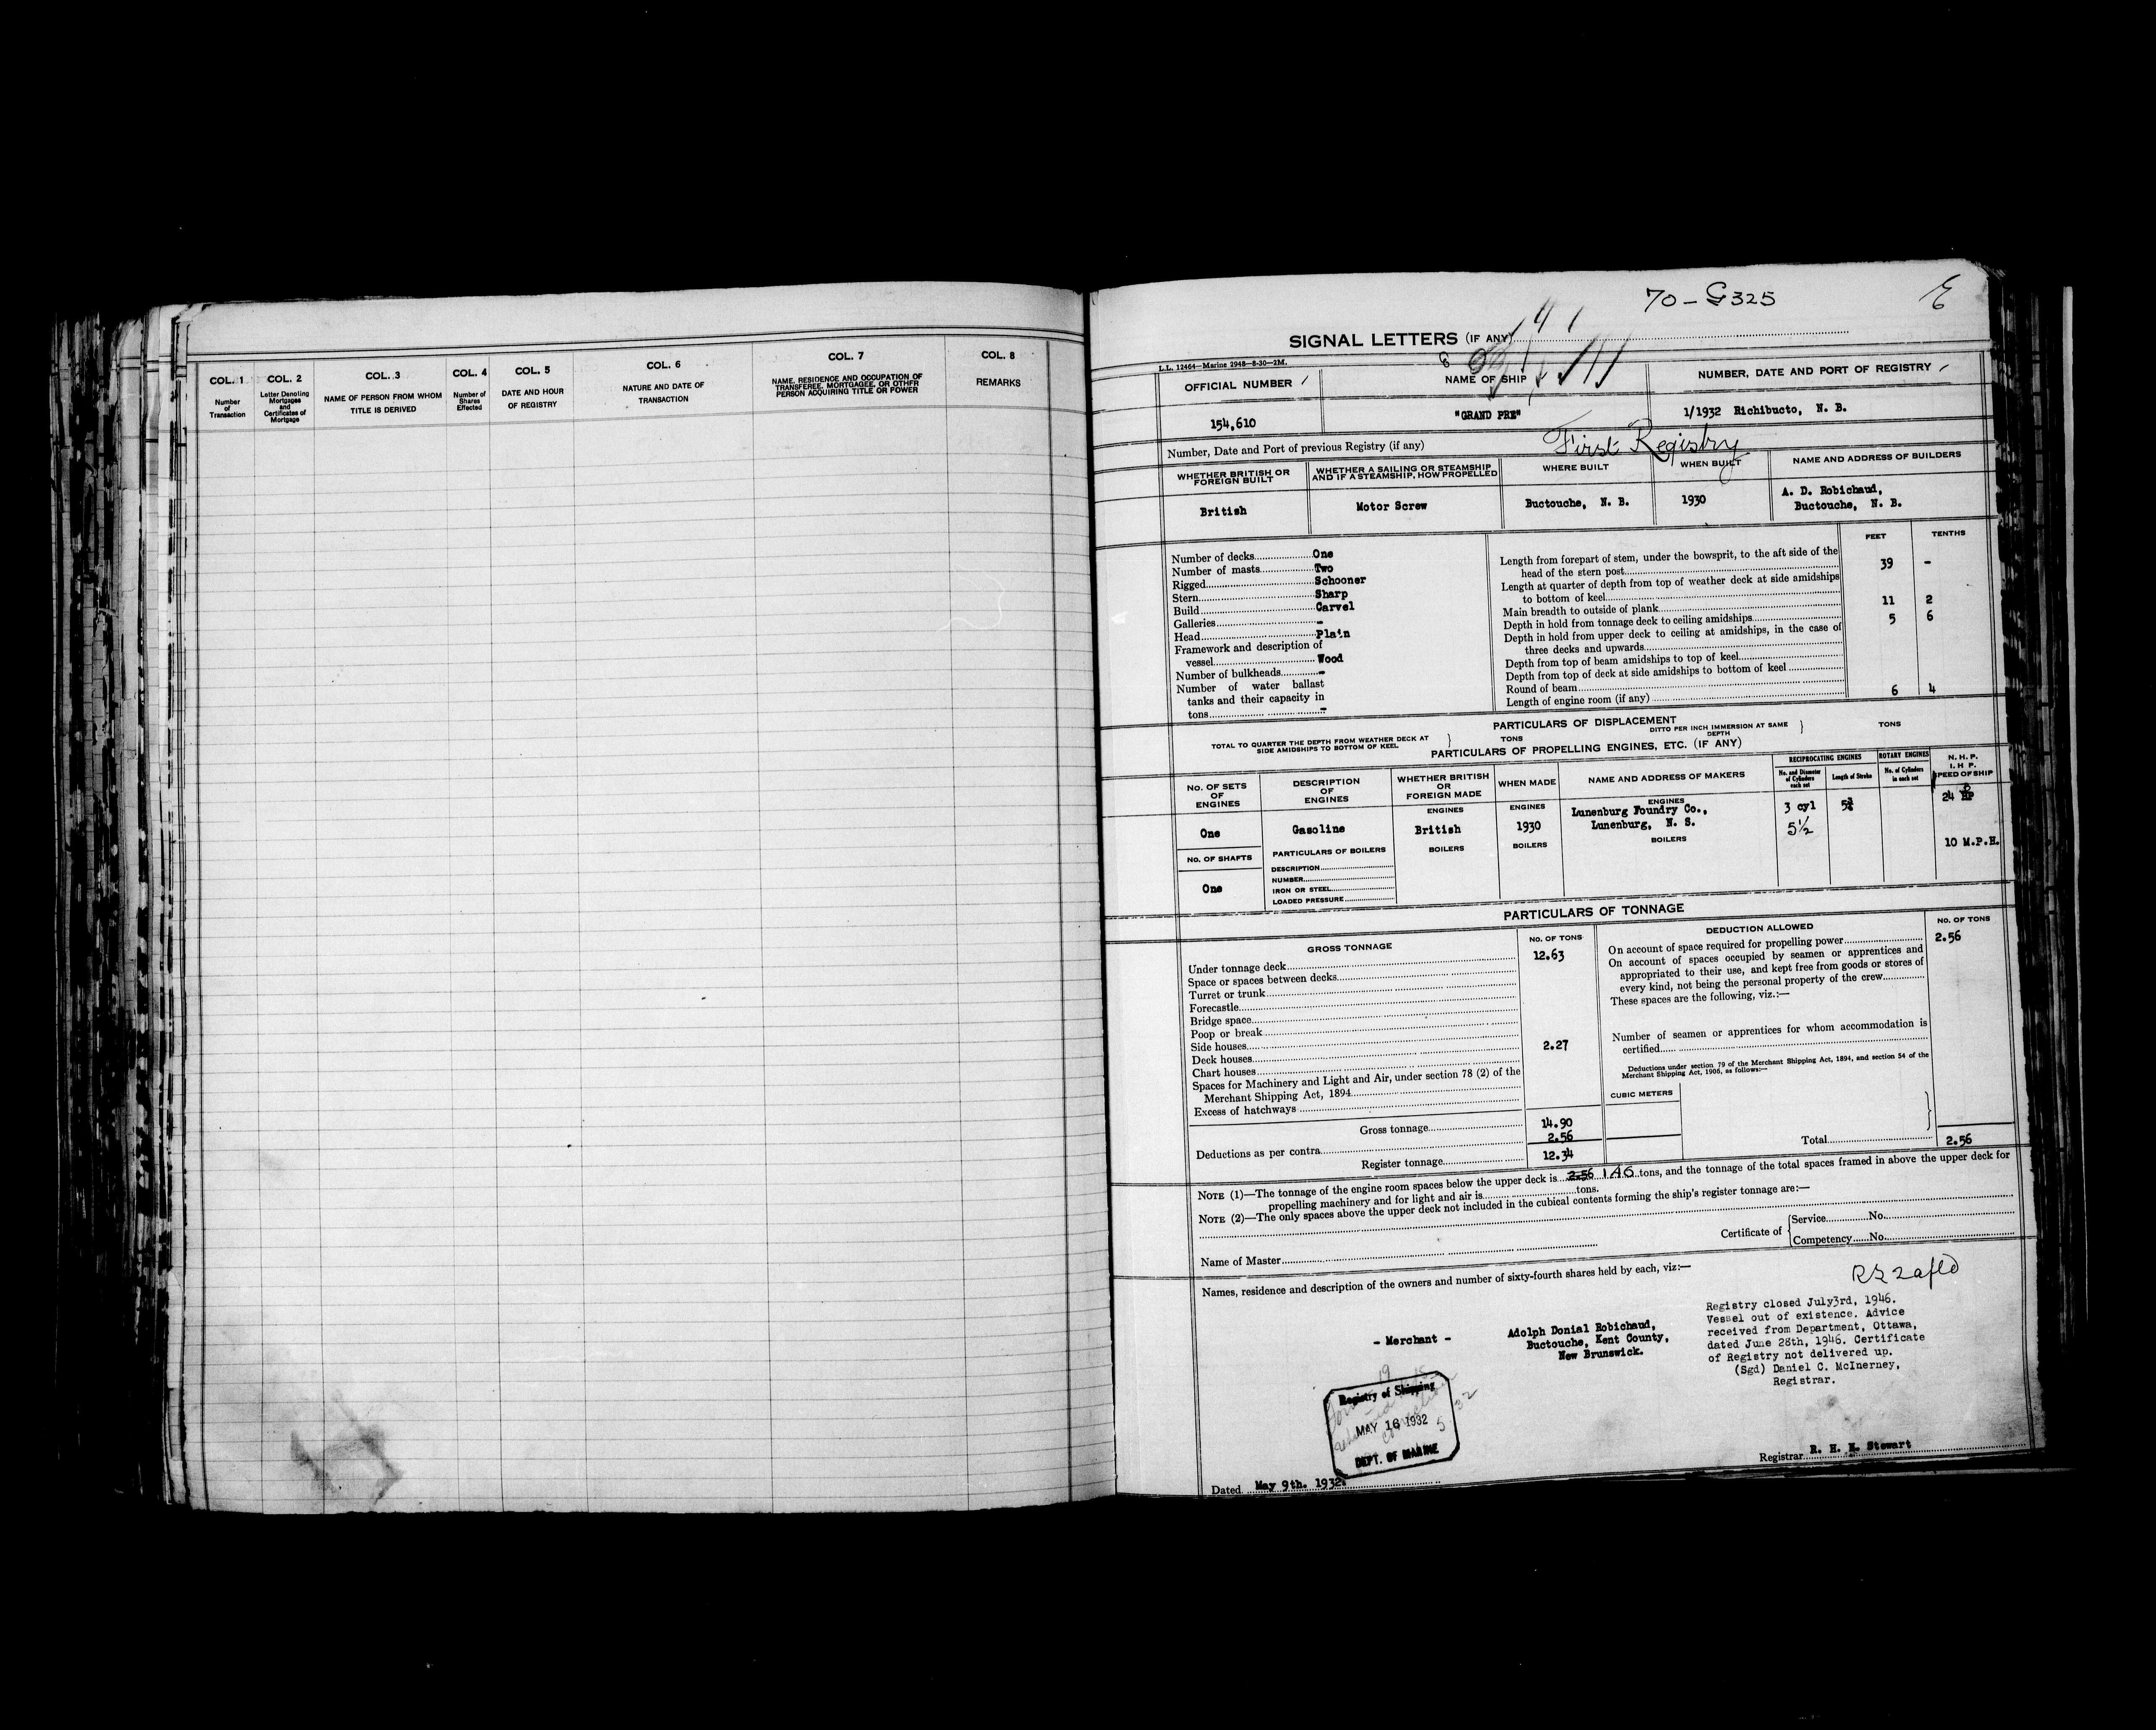 COL. 1
Number
of
Transaction
COL. 2
Letter Denoting
Mortgages
and
Certificates of
Mortgage
COL. 3
NAME OF PERSON FROM WHOM
TITLE IS DERIVED
COL. 4
Number of
Shares
Effected
COL. 5
DATE AND HOUR
OF REGISTRY
COL. 6
NATURE AND DATE OF
TRANSACTION
COL. 7
NAME, RESIDENCE AND OCCUPATION OF
TRANSFEREE, MORTGAGEE, OR OTHER
PERSON ACQUIRING TITLE OR POWER
COL. 8
REMARKS
70-G325
SIGNAL LETTERS (IF ANY)
L.L. 12464—Marine 2948—8-30—2M.
OFFICIAL NUMBER
NAME OF SHIP
NUMBER, DATE AND PORT OF REGISTRY
154,610
"GRAND PRE"
1/1932 Richibucto, N. B.
Number, Date and Port of previous Registry (if any) First Registry
WHETHER BRITISH OR
FOREIGN BUILT
WHETHER A SAILING OR STEAMSHIP
AND IF A STEAMSHIP, HOW PROPELLED
WHERE BUILT
WHEN BUILT
NAME AND ADDRESS OF BUILDERS
British
Motor Screw
Buctouche, N. B.
1930
A. D. Robichaud,
Buctouche, N. B.
Number of decks One
Number of masts Two
Rigged Schooner
Stern Sharp
Build Carvel
Galleries -
Head Plain
Framework and description of
vessel Wood
Number of bulkheads -
Number of water ballast
tanks and their capacity in
tons -
FEET TENTHS
Length from forepart of stem, under the bowsprit, to the aft side of the
head of the stern post 39 -
Length at quarter of depth from top of weather deck at side amidships
to bottom of keel
Main breadth to outside of plank 11 2
Depth in hold from tonnage deck to ceiling amidships 5 6
Depth in hold from upper deck to ceiling at amidships, in the case of
three decks and upwards
Depth from top of beam amidships to top of keel
Depth from top of deck at side amidships to bottom of keel
Round of beam
Length of engine room (if any) 6 4
PARTICULARS OF DISPLACEMENT
TOTAL TO QUARTER THE DEPTH FROM WEATHER DECK AT
SIDE AMIDSHIPS TO BOTTOM OF KEEL
TONS
DITTO PER INCH IMMERSION AT SAME
DEPTH
TONS
PARTICULARS OF PROPELLING ENGINES, ETC. (IF ANY)
NO. OF SETS
OF
ENGINES
DESCRIPTION
OF
ENGINES
WHETHER BRITISH
OR
FOREIGN MADE
WHEN MADE
NAME AND ADDRESS OF MAKERS
RECIPROCATING ENGINES
No. and Diameter
of Cylinders
each set
Length of Stroke
ROTARY ENGINES
No. of Cylinders
in each set
N. H. P.
I. H. P.
SPEED OF SHIP
ENGINES
ENGINES
ENGINES
One
Gasoline
British
1930
Lunenburg Foundry Co.,
Lunenburg, N. S.
3 cyl
5½
24
10 M.P.H.
NO. OF SHAFTS
One
PARTICULARS OF BOILERS
BOILERS
BOILERS
BOILERS
DESCRIPTION
NUMBER
IRON OR STEEL
LOADED PRESSURE
PARTICULARS OF TONNAGE
GROSS TONNAGE
NO. OF TONS
Under tonnage deck 12.63
Space or spaces between decks
Turret or trunk
Forecastle
Bridge space
Poop or break
Side houses 2.27
Deck houses
Chart houses
Spaces for Machinery and Light and Air, under section 78 (2) of the
Merchant Shipping Act, 1894
Excess of hatchways
Gross tonnage 14.90
Deductions as per contra 2.56
Register tonnage 12.34
DEDUCTION ALLOWED
NO. OF TONS
On account of space required for propelling power 2.56
On account of spaces occupied by seamen or apprentices and
appropriated to their use, and kept free from goods or stores of
every kind, not being the personal property of the crew
These spaces are the following, viz.:—
Number of seamen or apprentices for whom accommodation is
certified
Deductions under section 79 of the Merchant Shipping Act, 1894, and section 54 of the
Merchant Shipping Act, 1906, as follows:—
CUBIC METERS
Total 2.56
NOTE (1)—The tonnage of the engine room spaces below the upper deck is 2.56 1.46 tons, and the tonnage of the total spaces framed in above the upper deck for
propelling machinery and for light and air is tons.
NOTE (2)—The only spaces above the upper deck not included in the cubical contents forming the ship's register tonnage are:—
Name of Master
Certificate of
Service No.
Competency No.
Names, residence and description of the owners and number of sixty-fourth shares held by each, viz:—
- Merchant -
Adolph Donial Robichaud,
Buctouche, Kent County,
New Brunswick.
Registry closed July3rd, 1946.
Vessel out of existence. Advice
received from Department, Ottawa,
dated June 28th, 1946. Certificate
of Registry not delivered up.
(Sgd) Daniel C. McInerney,
Registrar.
Registry of Shipping
MAY 16 1932
DEPT. OF MARINE
Dated May 9th. 1932.
Registrar R. H. K. Stewart